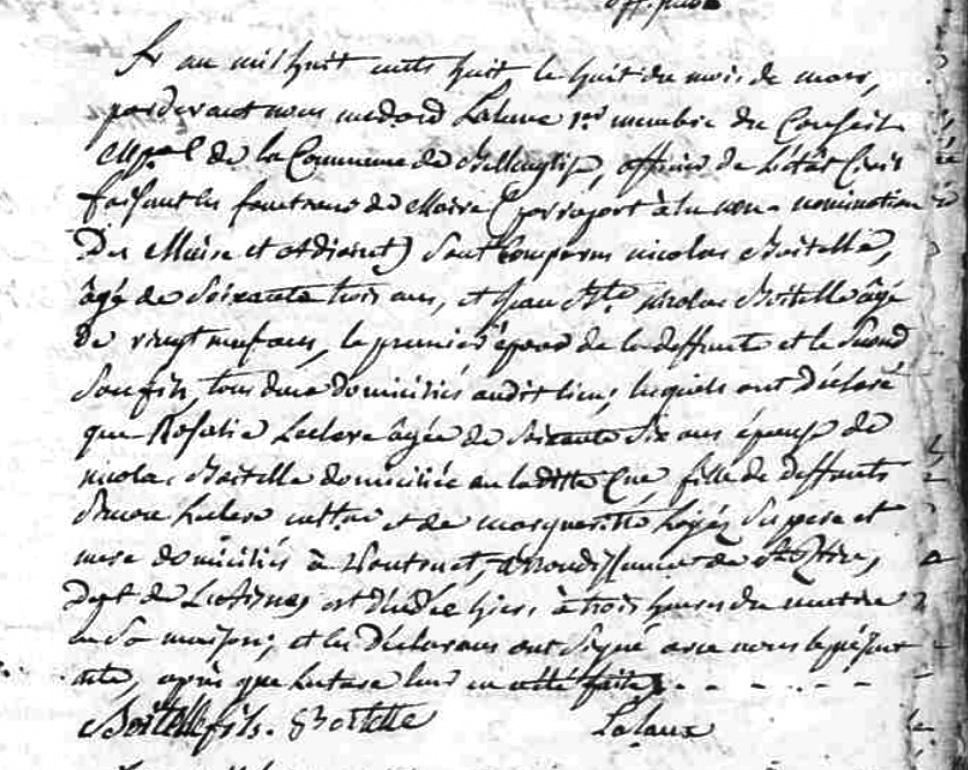 off. public
L'an mil huit cents huit le huit du mois de mars,
pardevant nous medard Lalaux 1er membre du Conseil
Mpal de la Commune de Bellenglise, officier de L'état Civil
faisant les fonctions de Maire (par raport à la non-nomination
Des Maire et adjoint) sont Comparus nicolas Boitelle,
âgé de soixante trois ans, et Jean Bte nicolas Boitelle âgé
de vingt neuf ans, le premier époux de la deffunte et le second
son fils, tous deux domiciliés audit lieu, lesquels ont déclaré
que Rosalie Leclere âgée de soixante six ans épouse de
nicolas Boitelle domiciliée en laditte Cne fille de deffunts
Leclere et de margueritte ses pere et
mere domiciliés à arrondissement de St Qtin,
Dept de L'aisne, est décédée hier, à trois heures du matin
en sa maison; et les déclarans ont signé avec nous le présent
acte, après que lecture leur en a été faite. - - - -
Boitelle fils. Boitelle Lalaux